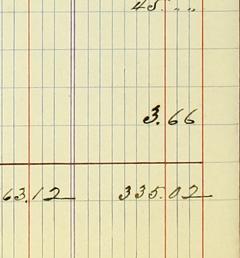 45. „ „
3.66
63.12 335.02